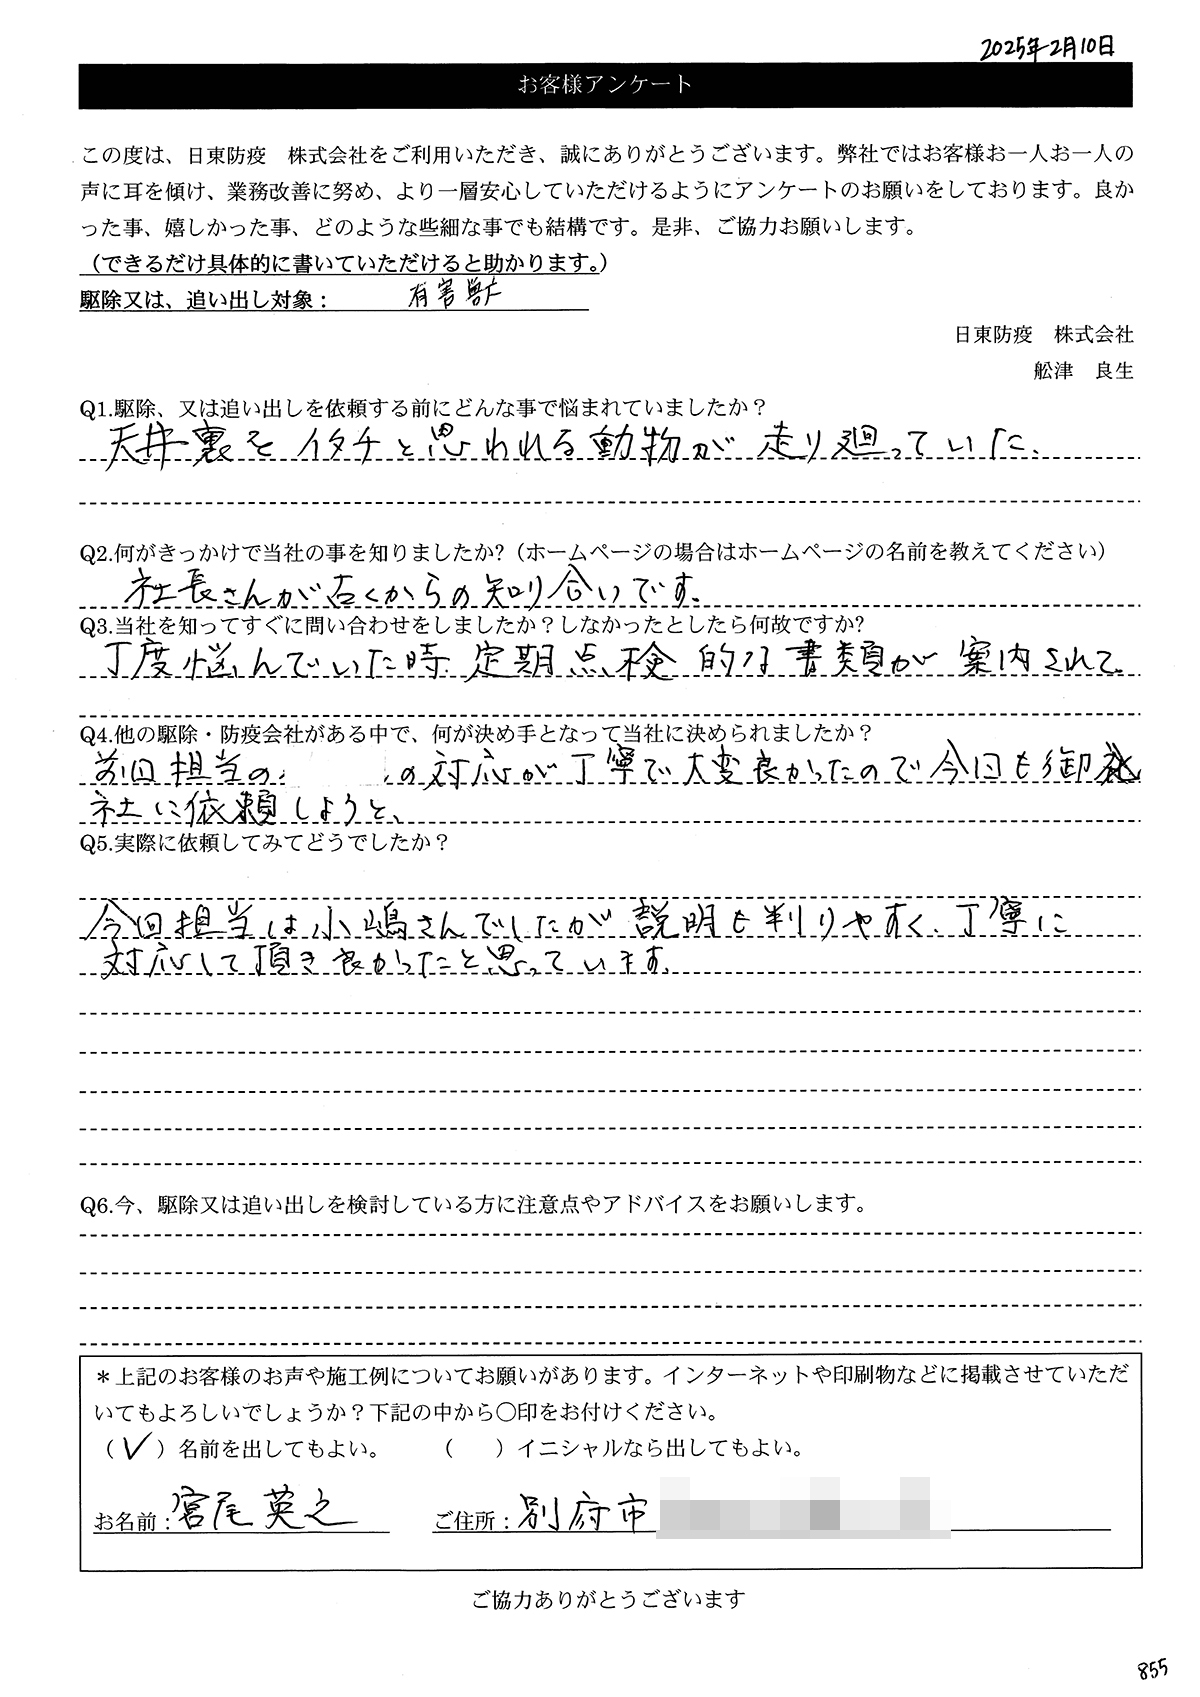 2025年2月10日
お客様アンケート
この度は、日東防疫　株式会社をご利用いただき、誠にありがとうございます。弊社ではお客様お一人お一人の
声に耳を傾け、業務改善に努め、より一層安心していただけるようにアンケートのお願いをしております。良か
った事、嬉しかった事、どのような些細な事でも結構です。是非、ご協力お願いします。
（できるだけ具体的に書いていただけると助かります。）
駆除又は、追い出し対象： 有害獣
日東防疫　株式会社
舩津　良生
Q1.駆除、又は追い出しを依頼する前にどんな事で悩まれていましたか？
天井裏をイタチと思われる動物が走り廻っていた、
Q2.何がきっかけで当社の事を知りましたか?（ホームページの場合はホームページの名前を教えてください）
社長さんが古くからの知り合いです。
Q3.当社を知ってすぐに問い合わせをしましたか？しなかったとしたら何故ですか?
丁度悩んでいた時定期点検的な書類が案内されて
Q4.他の駆除・防疫会社がある中で、何が決め手となって当社に決められましたか？
前回担当の　　　の対応が丁寧で大変良かったので今回も御
社に依頼しようと、
Q5.実際に依頼してみてどうでしたか？
今回担当は小嶋さんでしたが説明も判りやすく、丁寧に
対応して頂き良かったと思っています。
Q6.今、駆除又は追い出しを検討している方に注意点やアドバイスをお願いします。
＊上記のお客様のお声や施工例についてお願いがあります。インターネットや印刷物などに掲載させていただ
いてもよろしいでしょうか？下記の中から○印をお付けください。
（✓）名前を出してもよい。　　（　）イニシャルなら出してもよい。
お名前：宮尾英之　　ご住所：別府市
ご協力ありがとうございます
855